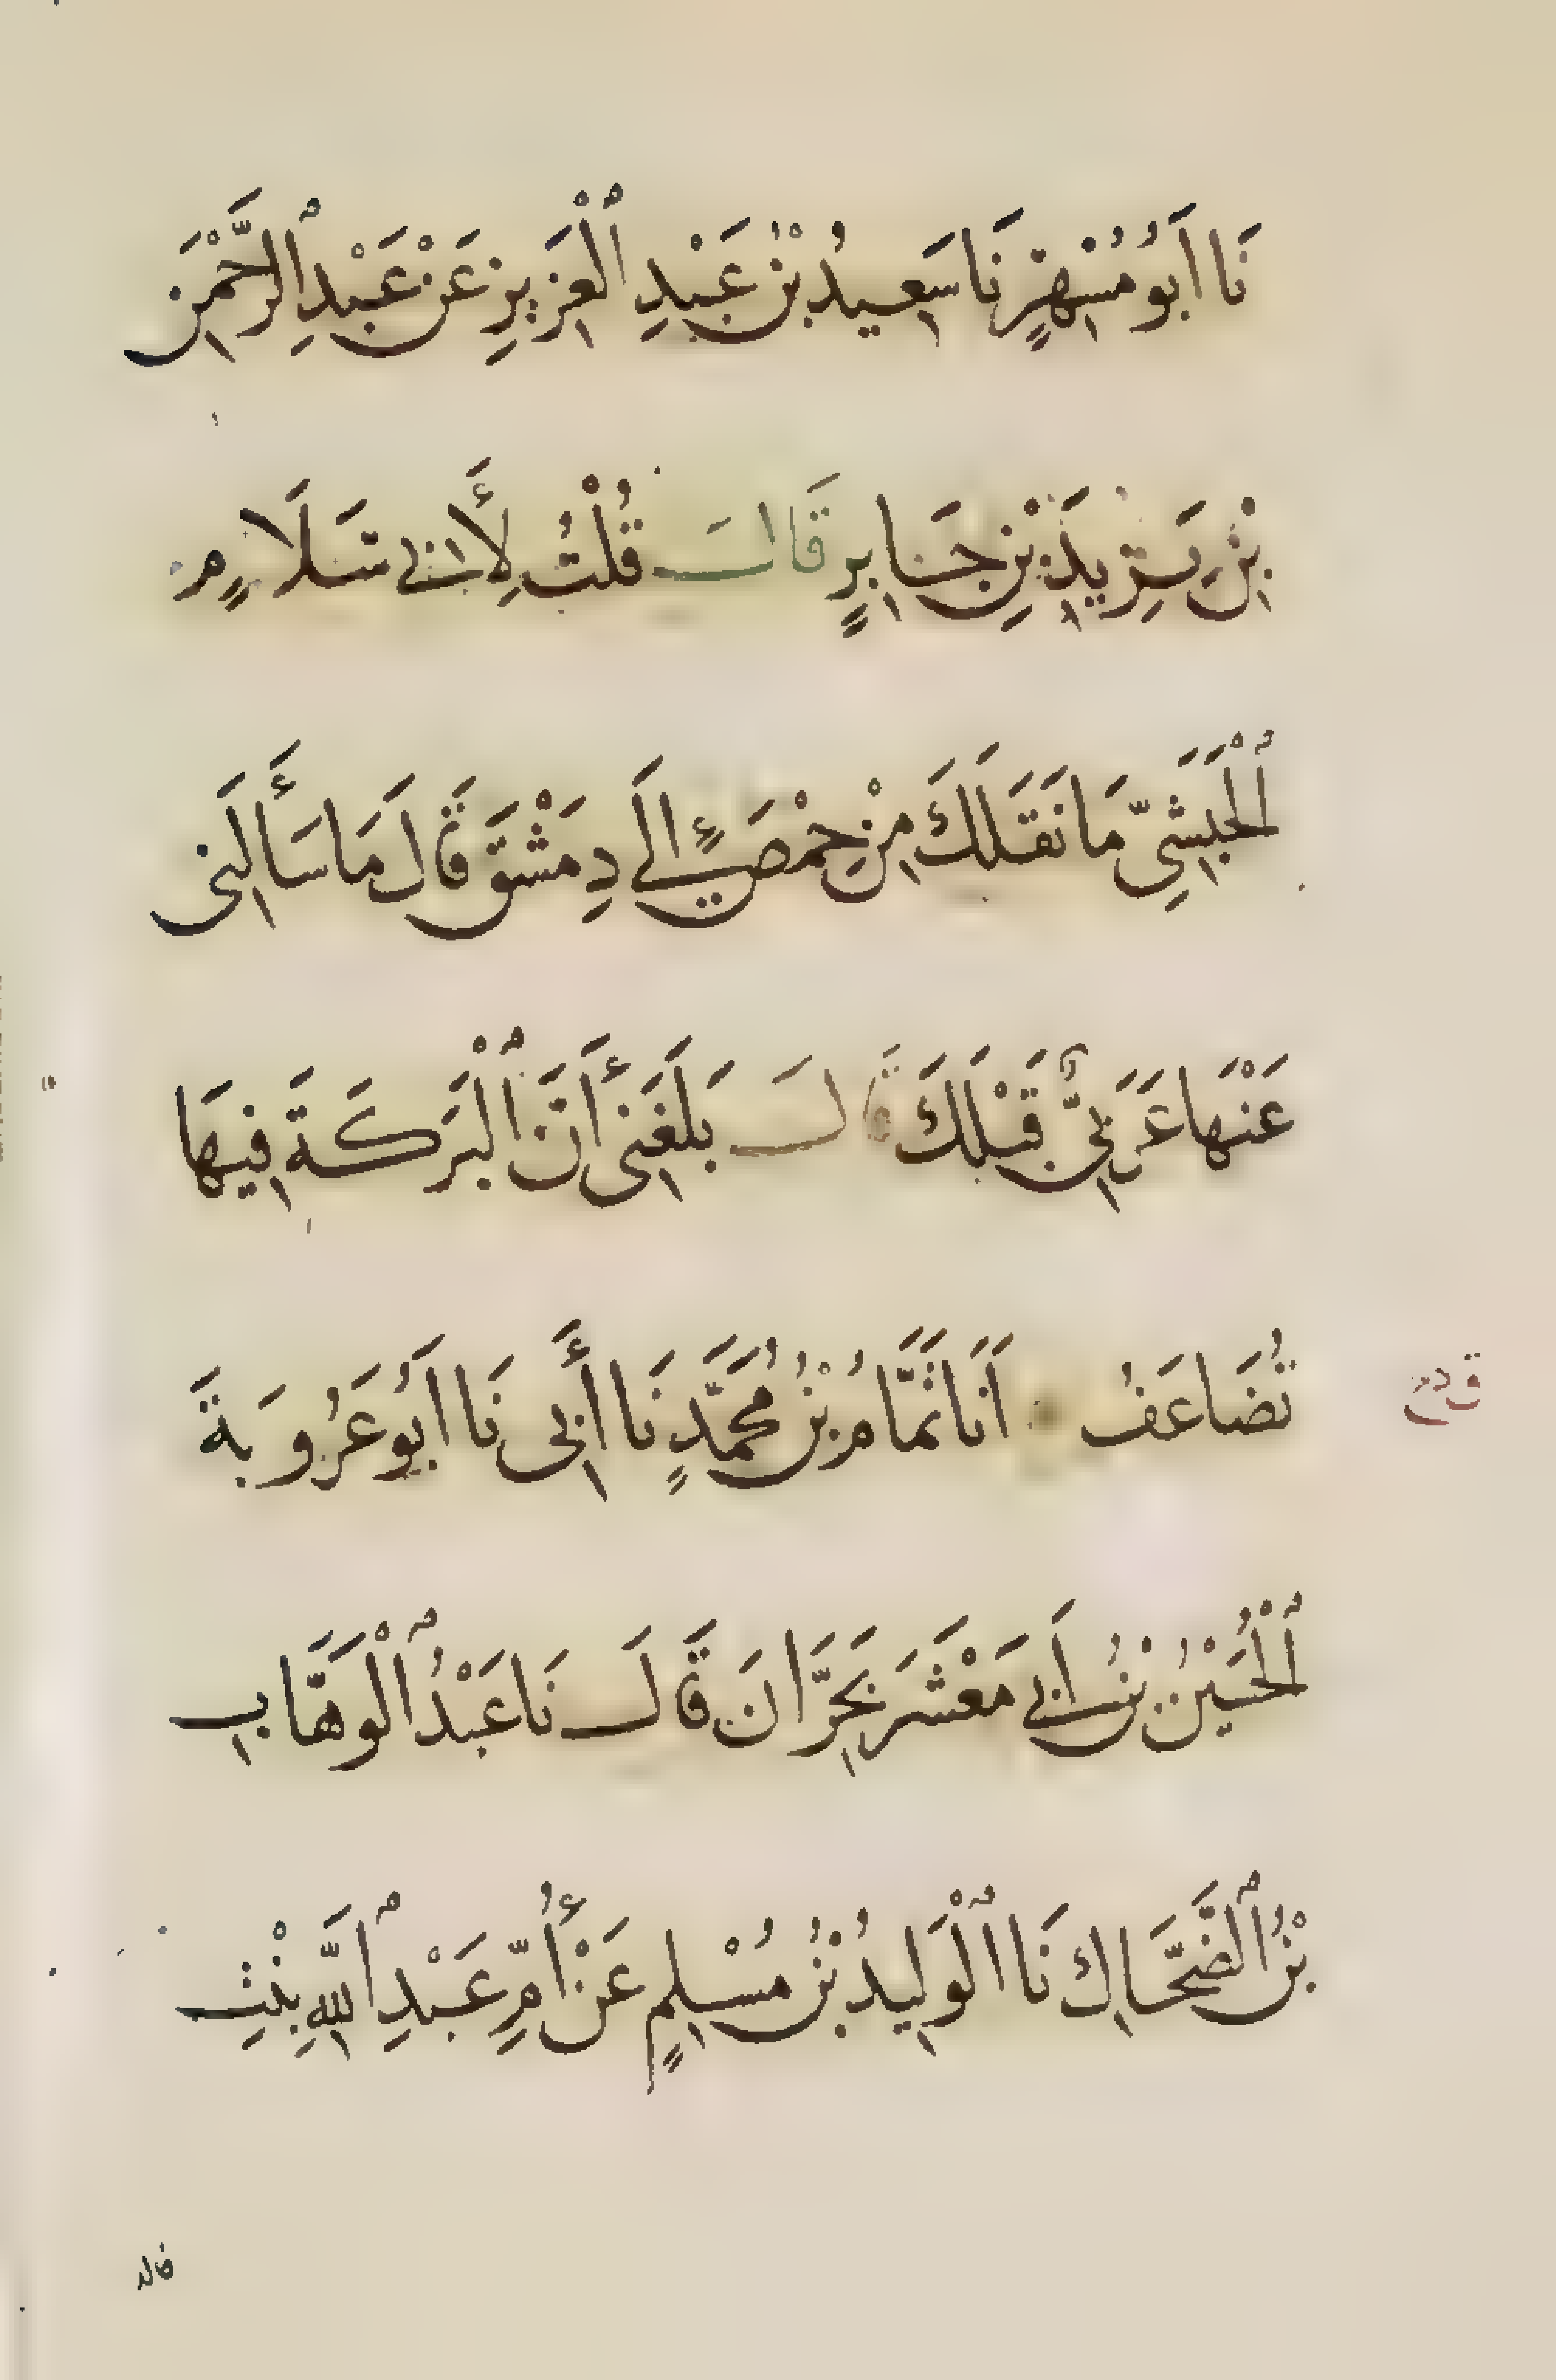 نَا اَبُو مُسْهِرٍ نَا سَعِيدُ بْنُ عَبْدِ ٱلْعَزِيزِ عَنْ عَبْدِ ٱلرَّحْمٰنِ
بْنِ يَزِيدَ بْنِ جَابِرٍ قَالَ قُلْتُ لِأَبِي سَلَّامٍ
ٱلْحَبَشِيِّ مَا نَقَلَكَ مِنْ حِمْصَ إِلَى دِمَشْقَ قَالَ مَا سَأَلَنِى
عَنْهَا عَرَبِيٌّ قَبْلَكَ قَالَ بَلَغَنِى أَنَّ ٱلْبَرَكَةَ فِيهَا
تُضَاعَفُ اَنَا تَمَّامُ بْنُ مُحَمَّدٍ نَا أَبِى نَا اَبُو عَرُوبَةَ
ق دمح
ٱلْحُسَيْنُ بْنُ اَبِي مَعْشَرَ بِحَرَّانَ قَالَ نَا عَبْدُ ٱلْوَهَّابِ
بْنُ ٱلضَّحَّاكِ نَا ٱلْوَلِيدُ بْنُ مُسْلِمٍ عَنْ أُمِّ عَبْدِ ٱللّٰهِ بِنْتِ
خالد